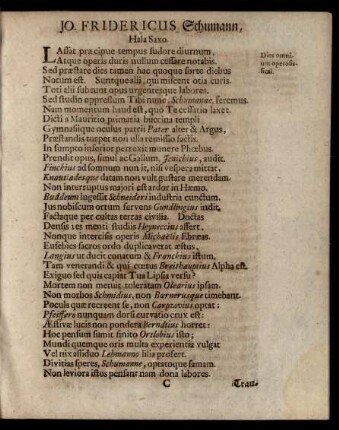 JO. FRIDERICUS Schumann,
Hala Saxo.
LAssat præcipue tempus sudore diurnum,
Atque operis duris nullum cessare notabis.
Sed præstare dies tamen hac quoque sorte diebus
Notum est. Sunt qui misceat otia curis.
Toti alii subeunt opus urgentesque labores.
Sed studio oppressum Tibi nunc, Schumanne, feremus.
Nam momentum haud est, quo Te cessatio laxet.
Dicti a Mauritio primatia buccina templi
Gymnasiique oculus patrii Pater alter & Argus,
Præstandis torpet non ulla remissio factis.
In sumpto inferior perrexit munere Phœbus.
Prendit opus, simul ac Gallum, Jenichius, audit.
Finckius ad somnum non it, nisi vespera mittat,
Knautiadesque datam non vult gustare merendam.
Non interruptus majori est ardor in Hæmo.
Buddeum ingessit Schneideri industria cunctum.
Jus nobiscum ortum servens Gundlingius indit,
Factaque per cultas terras civilia. Doctas
Densis tes menti studiis Heyneccius assert.
Nonque intercisis operis Michaelis Ebræas.
Eusebies sacros ordo duplicaverat æstus,
Langius ut ducit conatum & Franckius istum.
Tam venerandi & qui cœtus Breithaupsius Alpha est.
Exiguo sed quis capiat Tua Lipsa versu?
Mortem non metuit toleratam Olearius ipsam.
Non morbos Schmidius, non Barnerusque timebant.
Pocula quæ recreent se, non Carpzovius optat:
Pfeiffere nunquam dorsi curvatio crux est:
Æstivæ lucis non pondera Berndtius horret:
Hoc pensum sumit sinito Ortlobius istu;
Mundi quemque oris multa experientia vulgat
Vel nix assiduo Lehmanno lilia profert.
Divitias speres, Schumanne, optatoque famam.
Non leviora istos pensant nam dona labores.
C
Trau-